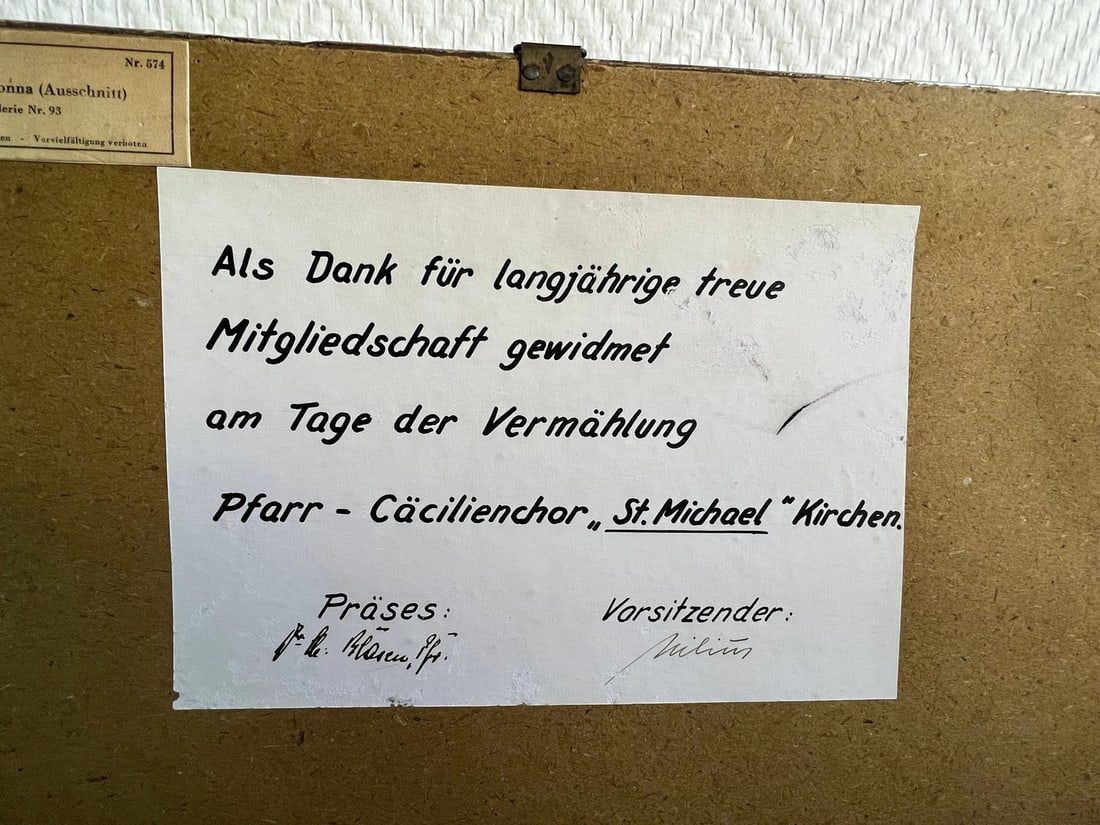 Nr. 574
onna (Ausschnitt)
lerie Nr. 93
en - Vervielfältigung verboten
Als Dank für langjährige treue
Mitgliedschaft gewidmet
am Tage der Vermählung
Pfarr - Cäcilienchor „St. Michael" Kirchen.
Präses: Vorsitzender: